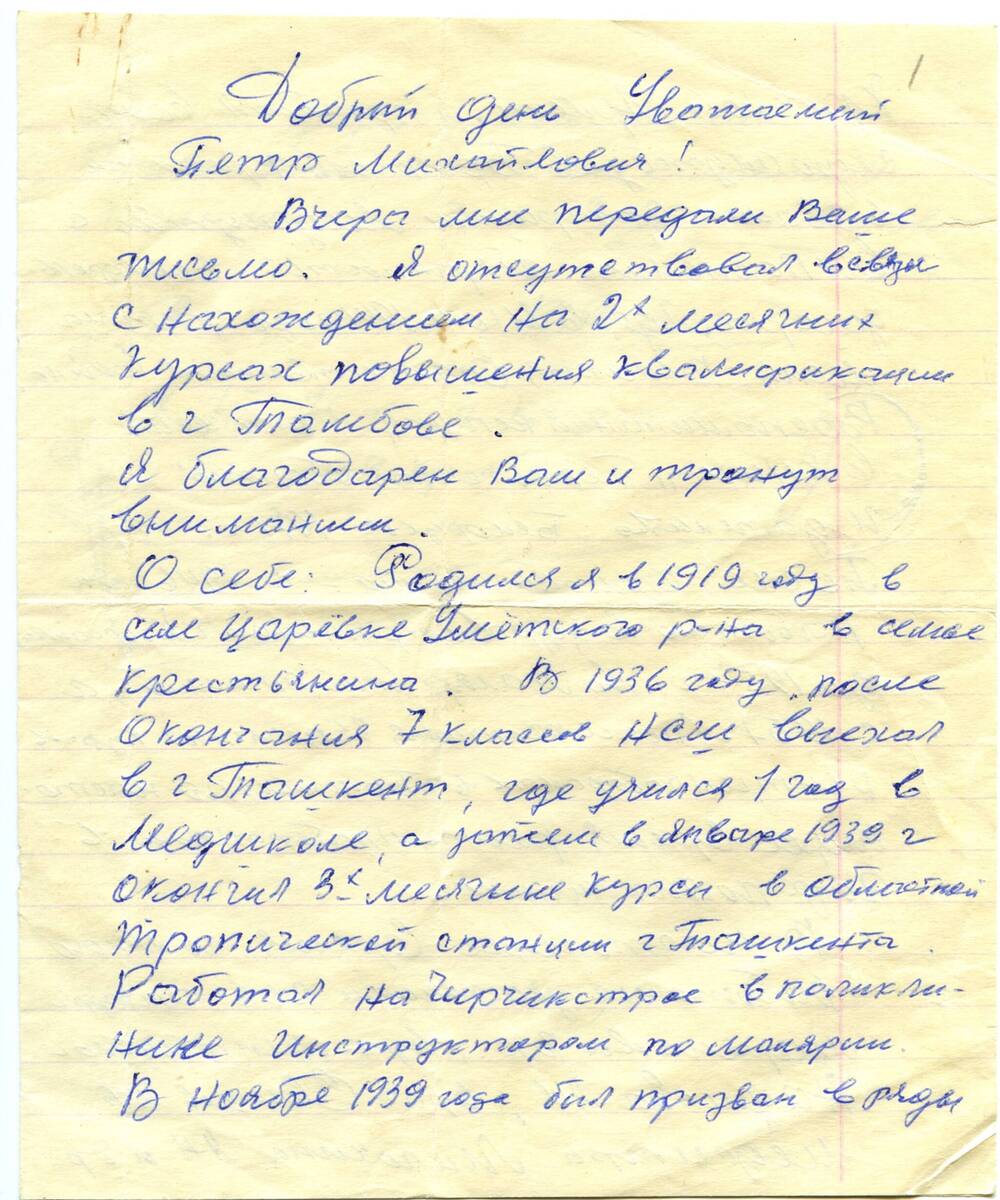 1
Добрый день Уважаемый
Петр Михайлович!
Вчера мне передали Ваше
письмо. Я отсутствовал в связи
с нахождением на 2х месячных
курсах повышения квалификации
в г Тамбове.
Я благодарен Вам и тронут
вниманием.
О себе: Родился я в 1919 году в
селе Царёвке Умётского р-на в семье
крестьянина. В 1936 году, после
окончания 7 классов НСШ выехал
в г Ташкент, где учился 1 год в
Медшколе, а затем в январе 1939 г
окончил 3х месячные курсы в областной
тропической станции г Ташкента.
Работал на Чирчикстрое в поликли-
нике инструктором по малярии.
В ноябре 1939 года был призван в ряды